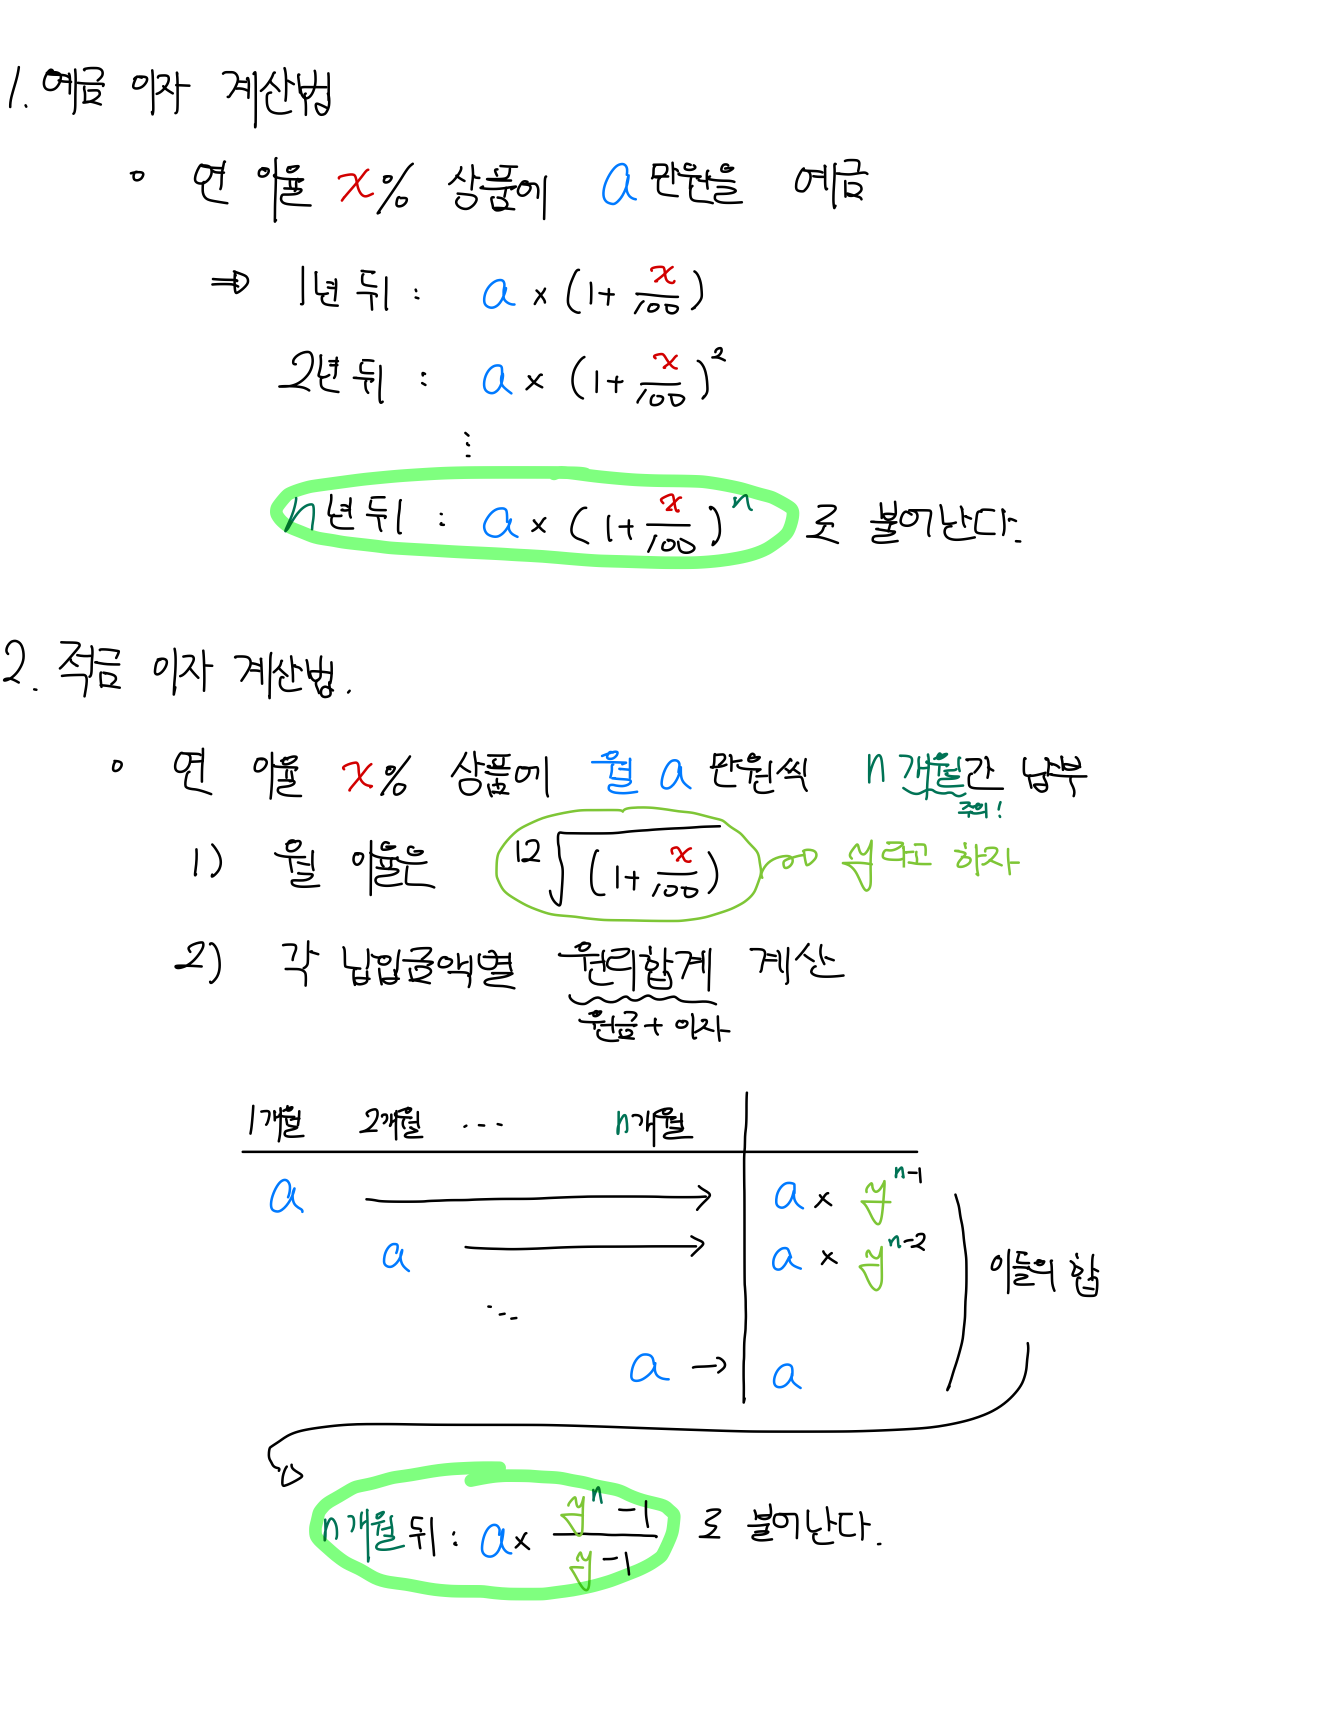 1. 예금 이자 계산법
∘ 연 이율 x% 상품에 a만원을 예금
⇒ 1년 뒤 : a × (1+x/100)
2년 뒤 : a × (1+x/100)²
⋮
n년 뒤 : a × (1+x/100)ⁿ 로 불어난다.
2. 적금 이자 계산법.
∘ 연 이율 x% 상품에 월 a만원씩 n개월간 납부
주의!
1) 월 이율은 ¹²√(1+x/100) y라고 하자
2) 각 납입금액별 원리합계 계산
원금 + 이자
1개월 2개월 ··· n개월
a → a × yⁿ⁻¹
a → a × yⁿ⁻²
⋱
a → a
이들의 합
n개월 뒤 : a × (yⁿ-1)/(y-1) 로 불어난다.